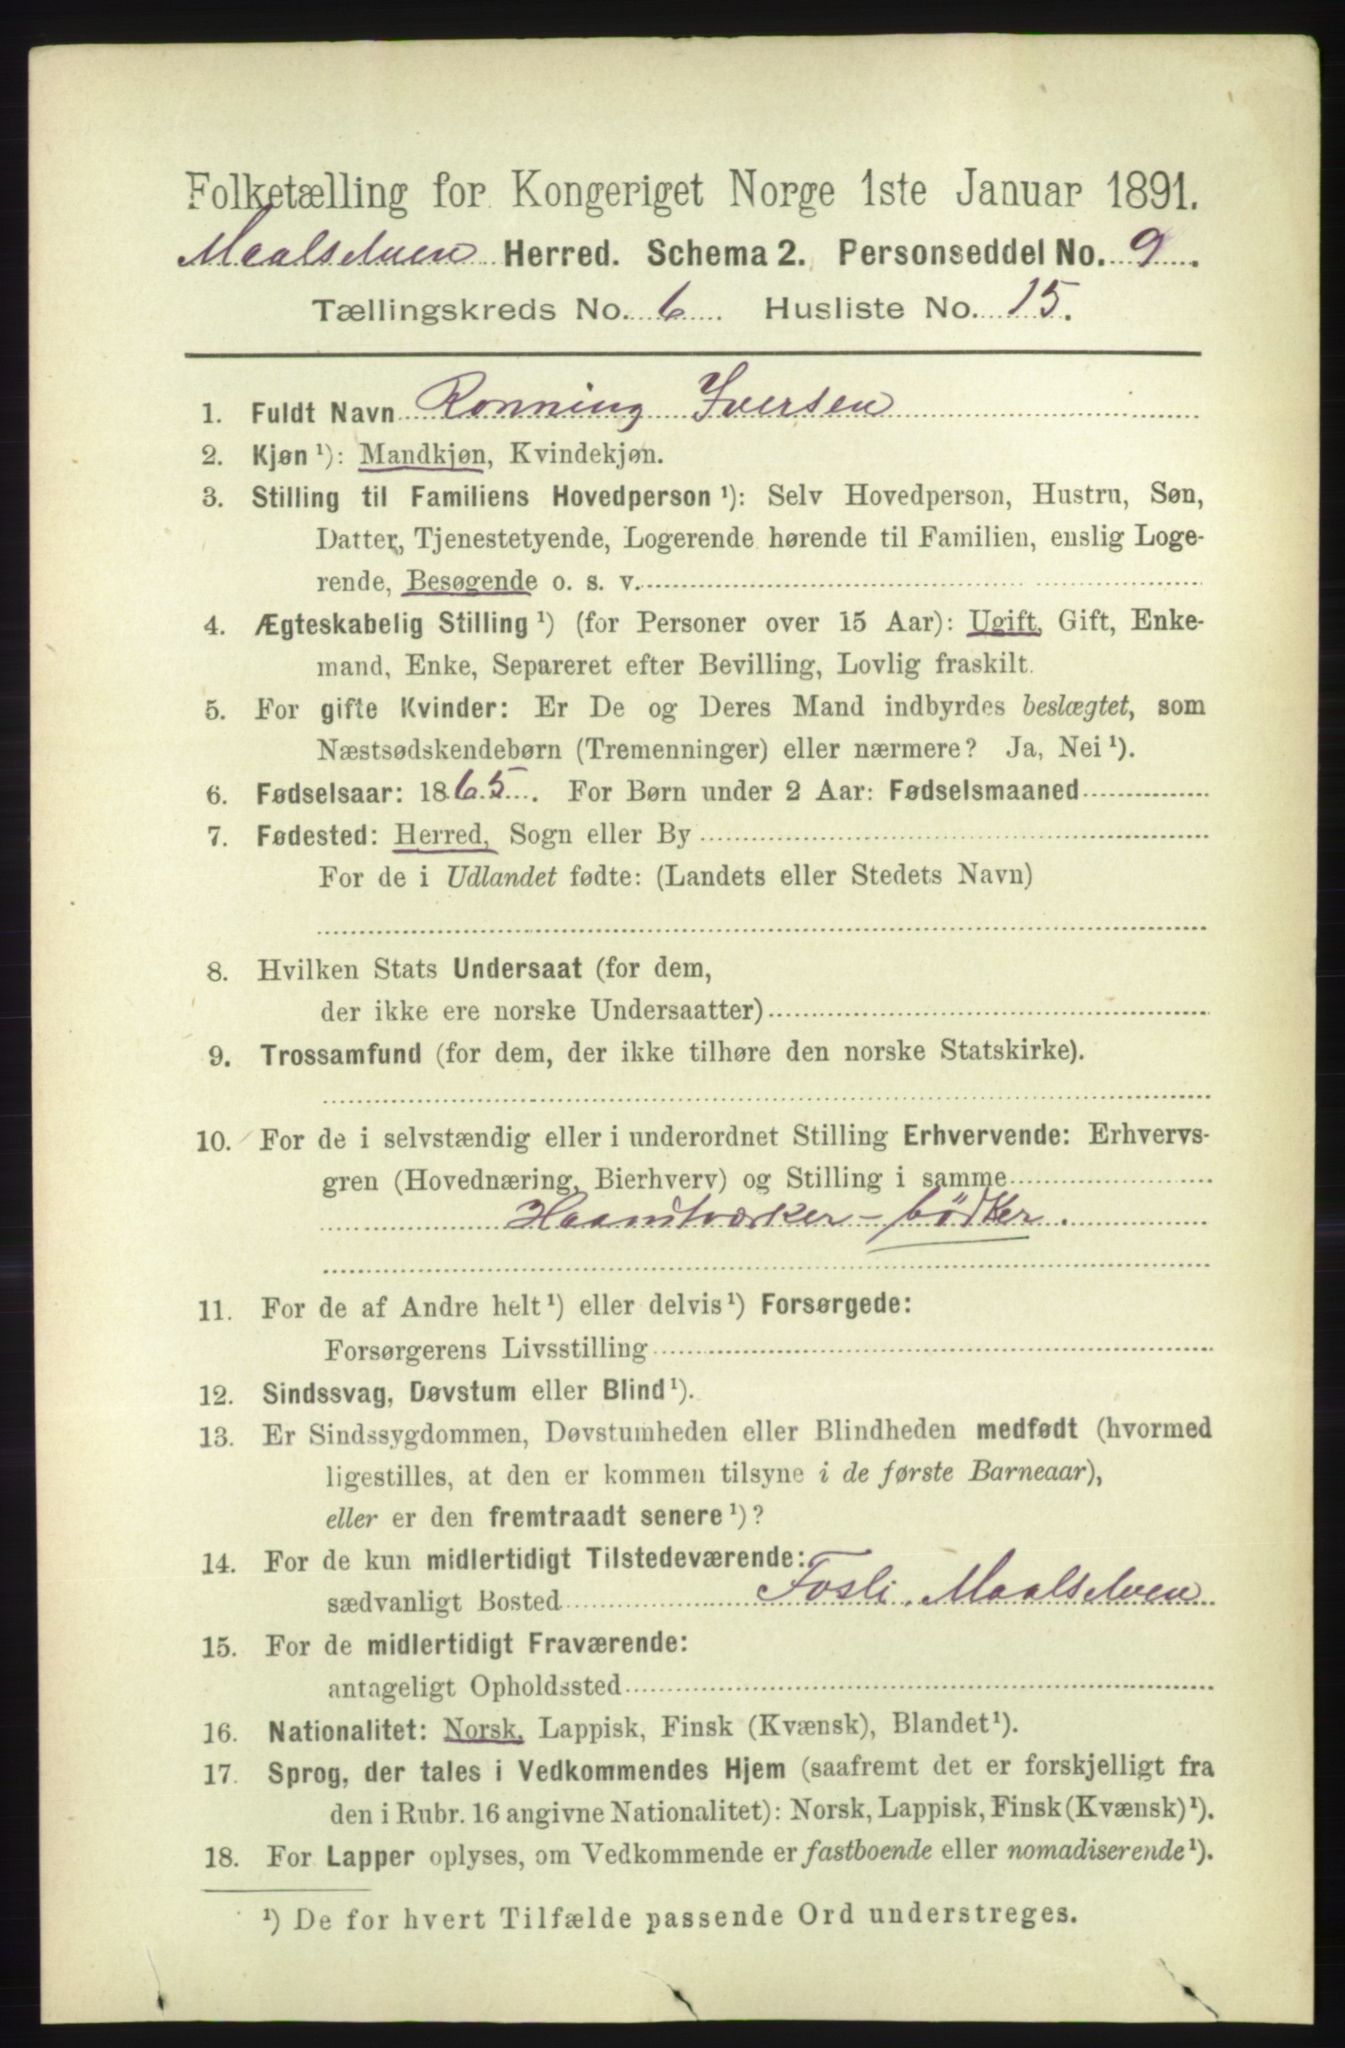 Folketælling for Kongeriget Norge 1ste Januar 1891.
Maalselven Herred. Schema 2. Personseddel No. 9.
Tællingskreds No. 6. Husliste No. 15.
1. Fuldt Navn Ronning Iversen
2. Kjøn ¹): Mandkjøn, Kvindekjøn.
3. Stilling til Familiens Hovedperson ¹): Selv Hovedperson, Hustru, Søn,
Datter, Tjenestetyende, Logerende hørende til Familien, enslig Loge-
rende, Besøgende o. s. v.
4. Ægteskabelig Stilling ¹) (for Personer over 15 Aar): Ugift, Gift, Enke-
mand, Enke, Separeret efter Bevilling, Lovlig fraskilt.
5. For gifte Kvinder: Er De og Deres Mand indbyrdes beslægtet, som
Næstsødskendebørn (Tremenninger) eller nærmere? Ja, Nei ¹).
6. Fødselsaar: 1865. For Børn under 2 Aar: Fødselsmaaned
7. Fødested: Herred, Sogn eller By
For de i Udlandet fødte: (Landets eller Stedets Navn)
8. Hvilken Stats Undersaat (for dem,
der ikke ere norske Undersaatter)
9. Trossamfund (for dem, der ikke tilhøre den norske Statskirke).
10. For de i selvstændig eller i underordnet Stilling Erhvervende: Erhvervs-
gren (Hovednæring, Bierhverv) og Stilling i samme
Haandtværker - bödker.
11. For de af Andre helt ¹) eller delvis ¹) Forsørgede:
Forsørgerens Livsstilling
12. Sindssvag, Døvstum eller Blind ¹).
13. Er Sindssygdommen, Døvstumheden eller Blindheden medfødt (hvormed
ligestilles, at den er kommen tilsyne i de første Barneaar),
eller er den fremtraadt senere ¹)?
14. For de kun midlertidigt Tilstedeværende:
sædvanligt Bosted Fosli. Maalselven
15. For de midlertidigt Fraværende:
antageligt Opholdssted
16. Nationalitet: Norsk, Lappisk, Finsk (Kvænsk), Blandet ¹).
17. Sprog, der tales i Vedkommendes Hjem (saafremt det er forskjelligt fra
den i Rubr. 16 angivne Nationalitet): Norsk, Lappisk, Finsk (Kvænsk) ¹).
18. For Lapper oplyses, om Vedkommende er fastboende eller nomadiserende ¹).
¹) De for hvert Tilfælde passende Ord understreges.